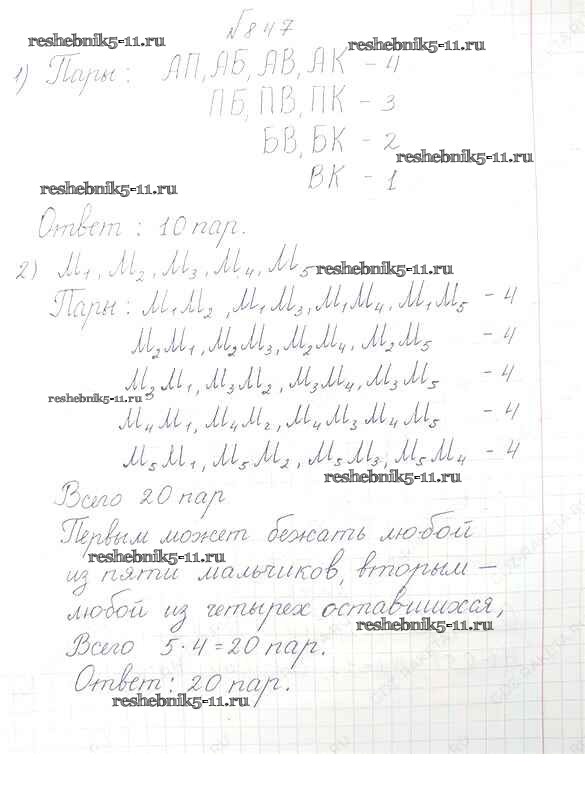 №847
reshebnik5-11.ru
reshebnik5-11.ru
1) Пары: АП, АБ, АВ, АК – 4
ПБ, ПВ, ПК – 3
БВ, БК – 2
reshebnik5-11.ru
ВК – 1
reshebnik5-11.ru
Ответ: 10 пар.
2) М₁, М₂, М₃, М₄, М₅
reshebnik5-11.ru
Пары: М₁М₂, М₁М₃, М₁М₄, М₁М₅ – 4
М₂М₁, М₂М₃, М₂М₄, М₂М₅ – 4
М₃М₁, М₃М₂, М₃М₄, М₃М₅ – 4
reshebnik5-11.ru
М₄М₁, М₄М₂, М₄М₃ М₄М₅ – 4
М₅М₁, М₅М₂, М₅М₃, М₅М₄ – 4
reshebnik5-11.ru
Всего 20 пар
Первым может бежать любой
reshebnik5-11.ru
из пяти мальчиков, вторым –
любой из четырех оставшихся,
reshebnik5-11.ru
Всего 5·4=20 пар.
Ответ: 20 пар.
reshebnik5-11.ru